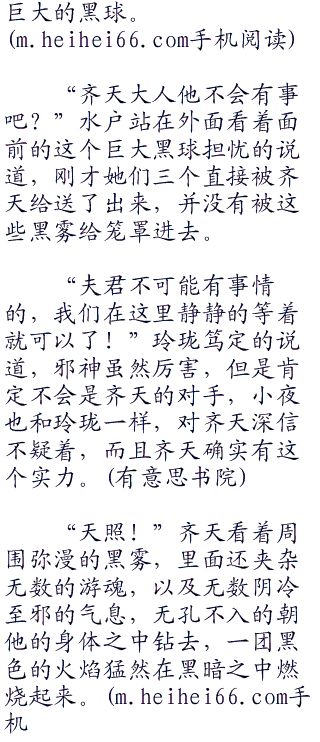 巨大的黑球。
(m.heihei66.com手机阅读)
“齐天大人他不会有事
吧？”水户站在外面看着面
前的这个巨大黑球担忧的说
道，刚才她们三个直接被齐
天给送了出来，并没有被这
些黑雾给笼罩进去。
“夫君不可能有事情
的，我们在这里静静的等着
就可以了！”玲珑笃定的说
道，邪神虽然厉害，但是肯
定不会是齐天的对手，小夜
也和玲珑一样，对齐天深信
不疑着，而且齐天确实有这
个实力。(有意思书院)
“天照！”齐天看着周
围弥漫的黑雾，里面还夹杂
无数的游魂，以及无数阴冷
至邪的气息，无孔不入的朝
他的身体之中钻去，一团黑
色的火焰猛然在黑暗之中燃
烧起来。(m.heihei66.com手
机